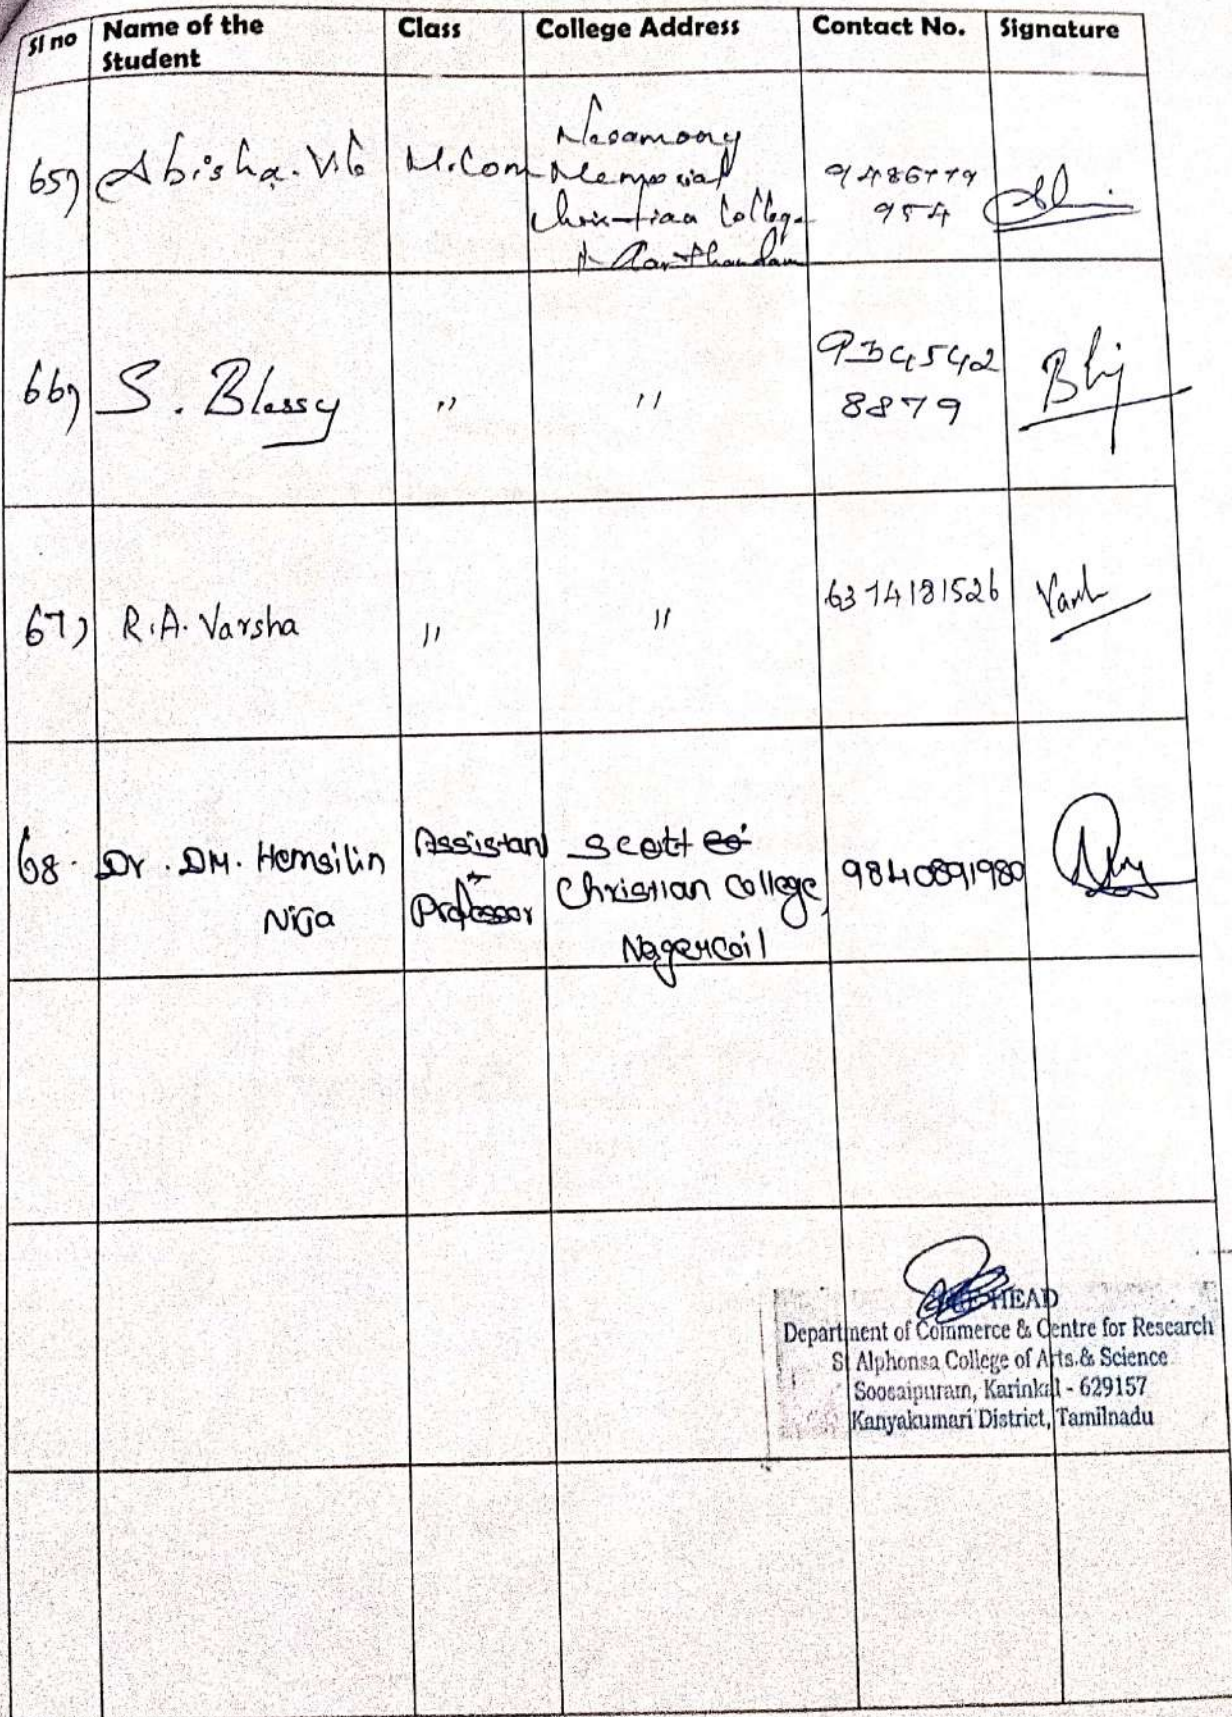 Sl no Name of the Student Class College Address Contact No. Signature
65) Abisha. V.G M.Com Nesamony
Memorial
Christian College
Marthandam
9486779
954
66) S. Blessy " " 934542
8879
67) R.A. Varsha " " 6374181526
68. Dr. DM. Hemsilin
Nija
Assistant
Professor
Scott
Christian College,
Nagercoil
9840891980
HEAD
Department of Commerce & Centre for Research
St Alphonsa College of Arts & Science
Soosaipuram, Karinkal - 629157
Kanyakumari District, Tamilnadu